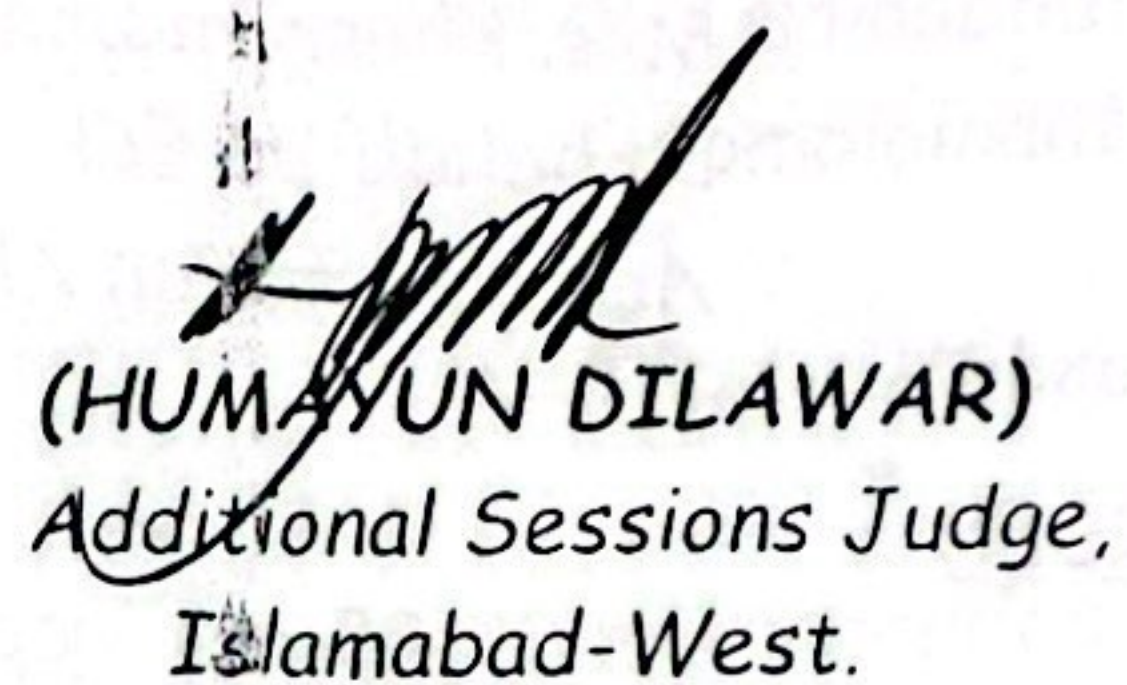 (HUMAYUN DILAWAR)
Additional Sessions Judge,
Islamabad-West.